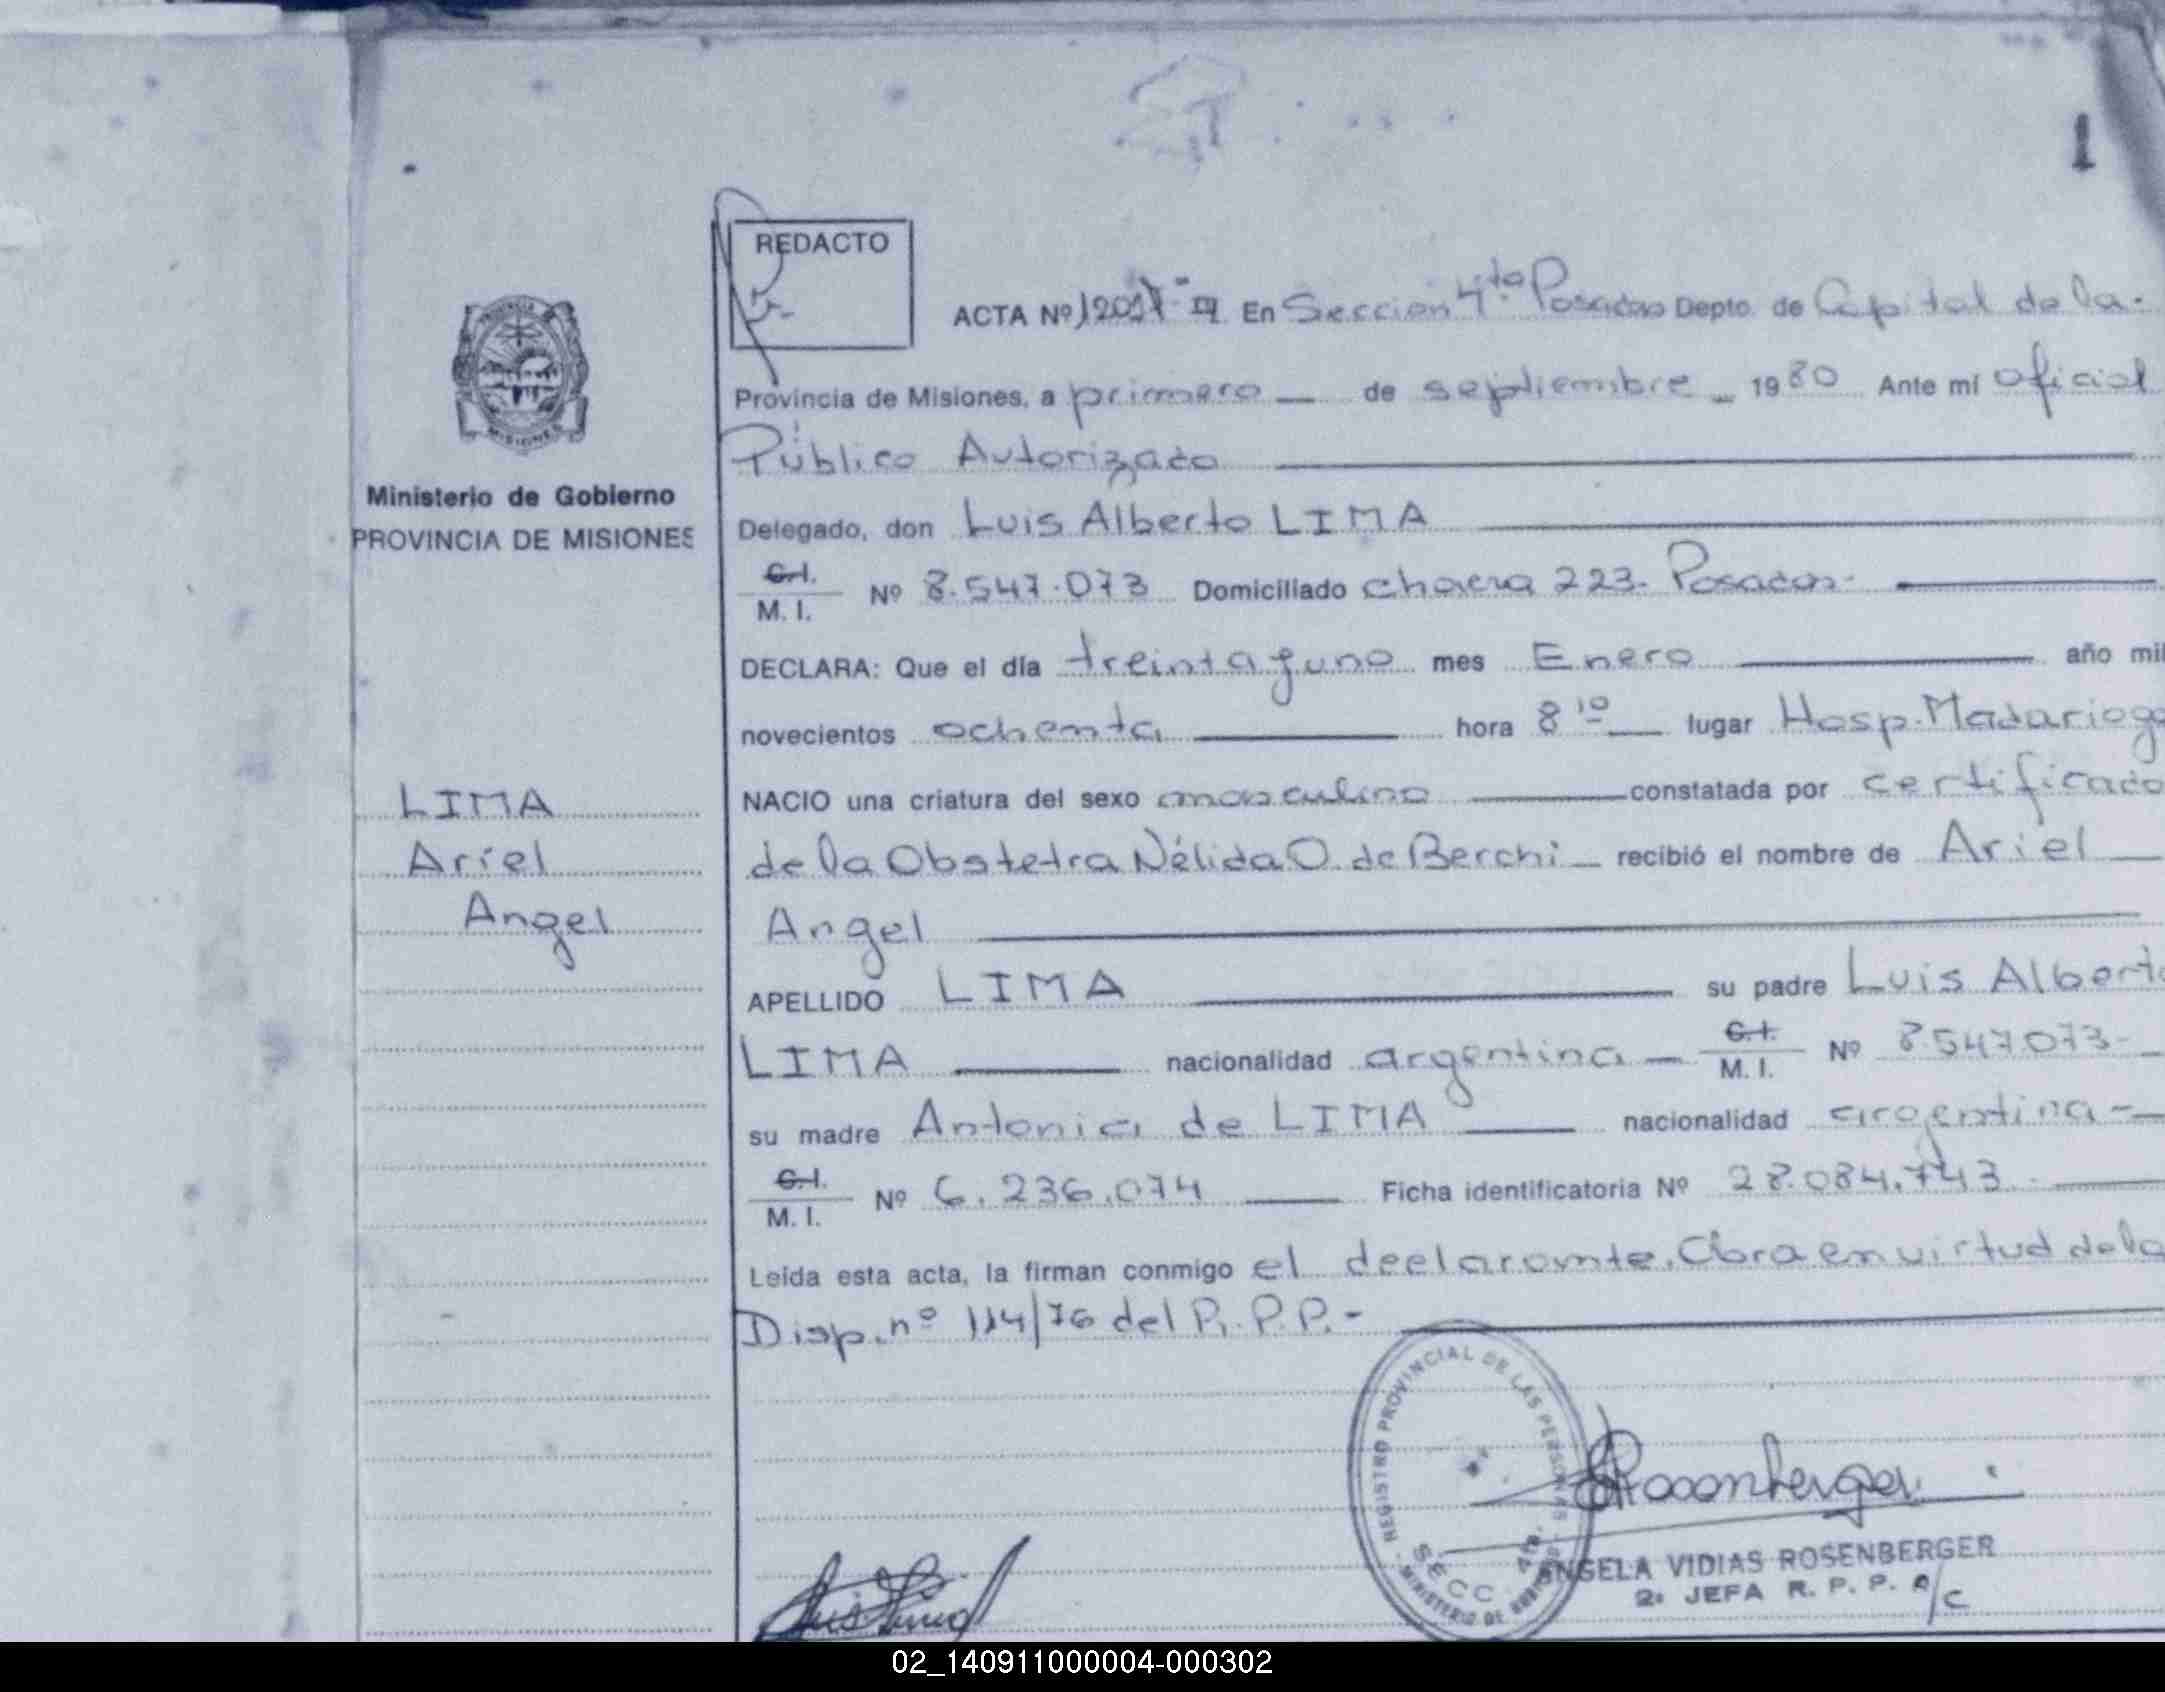 1
REDACTO
ACTA Nº En Sección 4ta Posadas Depto. de Capital de la
Provincia de Misiones, a primero de septiembre 1980 Ante mí oficial
Público Autorizado
Ministerio de Gobierno
PROVINCIA DE MISIONES
Delegado, don Luis Alberto LIMA
C.I.
M. I. Nº 8.547.073 Domiciliado chacra 223. Posadas.
DECLARA: Que el día treinta y uno mes Enero año mil
novecientos ochenta hora 8 10 lugar Hosp. Madariaga
LIMA
Ariel
Angel
NACIO una criatura del sexo masculino constatada por certificado
de la Obstetra Nélida O. de Berchi recibió el nombre de Ariel
Angel
APELLIDO LIMA su padre Luis Alberto
LIMA nacionalidad argentina C.I. M. I. Nº 8.547.073
su madre Antonia de LIMA nacionalidad argentina
C.I.
M. I. Nº 6.236.074 Ficha identificatoria Nº 28.084.743
Leída esta acta, la firman conmigo el declarante. Obra en virtud de la
Disp. nº 114/76 del R.P.P.-
REGISTRO PROVINCIAL DE LAS PERSONAS
MINISTERIO DE GOBIERNO
SECC. 4ta.
Rosenberger
ANGELA VIDIAS ROSENBERGER
2ª JEFA R. P. P. a/c
02_140911000004-000302